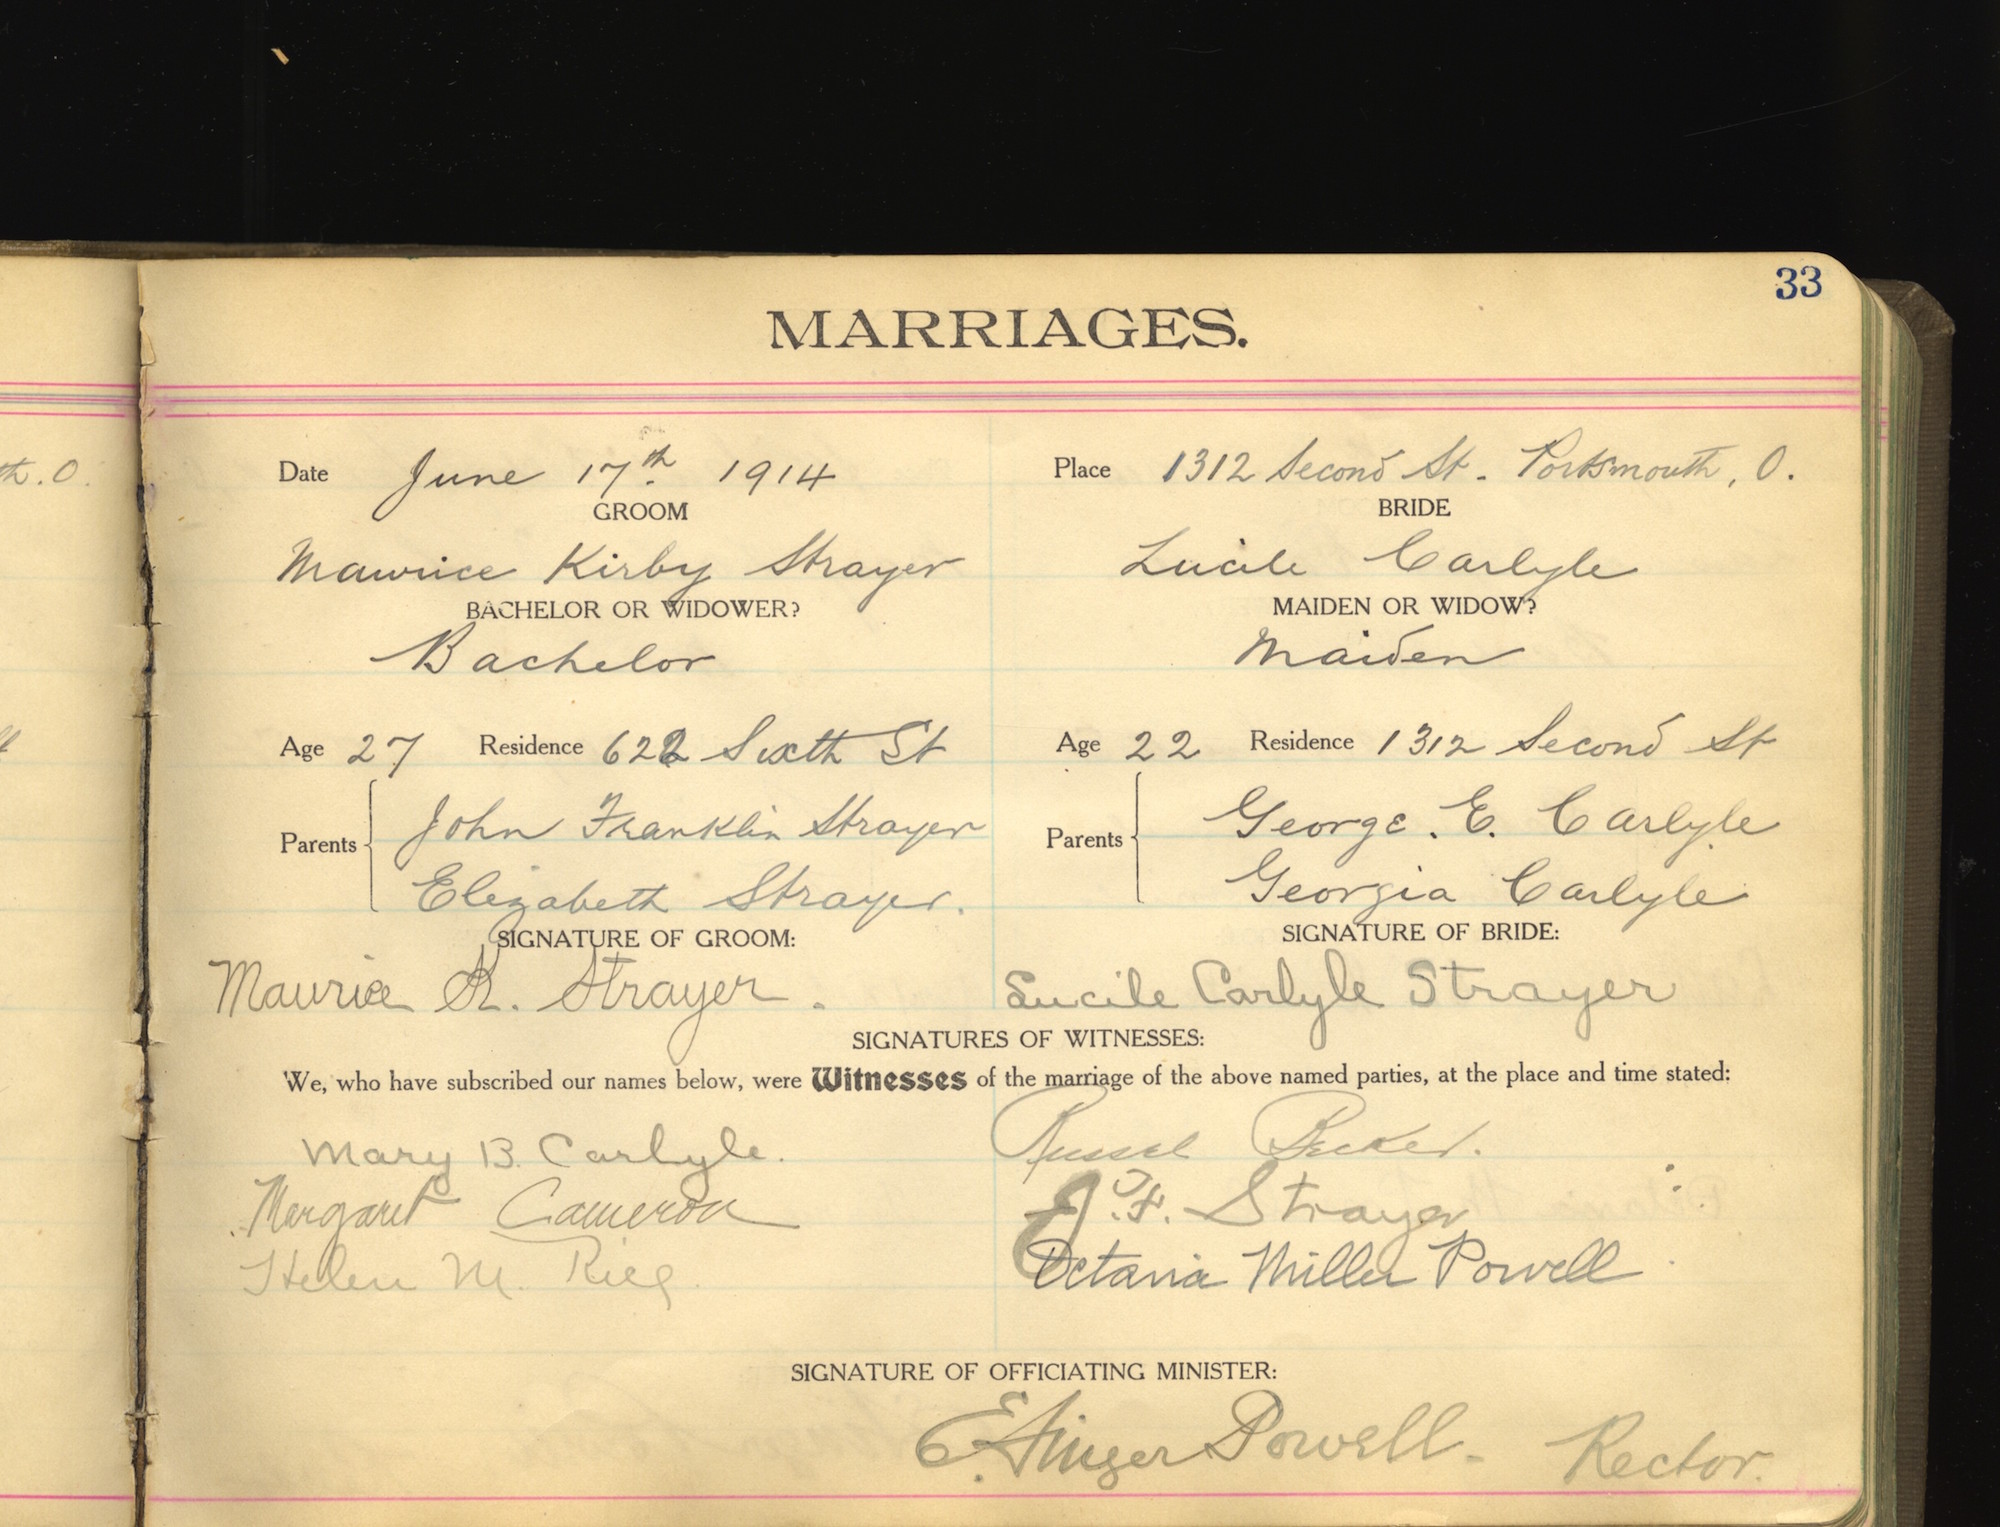 33
MARRIAGES.
th. O.
Date June 17th. 1914 Place 1312 Second St. Portsmouth, O.
GROOM BRIDE
Maurice Kirby Strayer Lucile Carlyle
BACHELOR OR WIDOWER? MAIDEN OR WIDOW?
Bachelor Maiden
Age 27 Residence 622 Sixth St Age 22 Residence 1312 Second St
Parents John Franklin Strayer Parents George. E. Carlyle
Elizabeth Strayer. Georgia Carlyle
SIGNATURE OF GROOM: SIGNATURE OF BRIDE:
Maurice K. Strayer. Lucile Carlyle Strayer
SIGNATURES OF WITNESSES:
We, who have subscribed our names below, were Witnesses of the marriage of the above named parties, at the place and time stated:
Mary B. Carlyle. Russel Becker.
Margaret Cameron J. F. Strayer
Helen M. Octavia Miller Powell
SIGNATURE OF OFFICIATING MINISTER:
E. Ainger Powell. Rector.